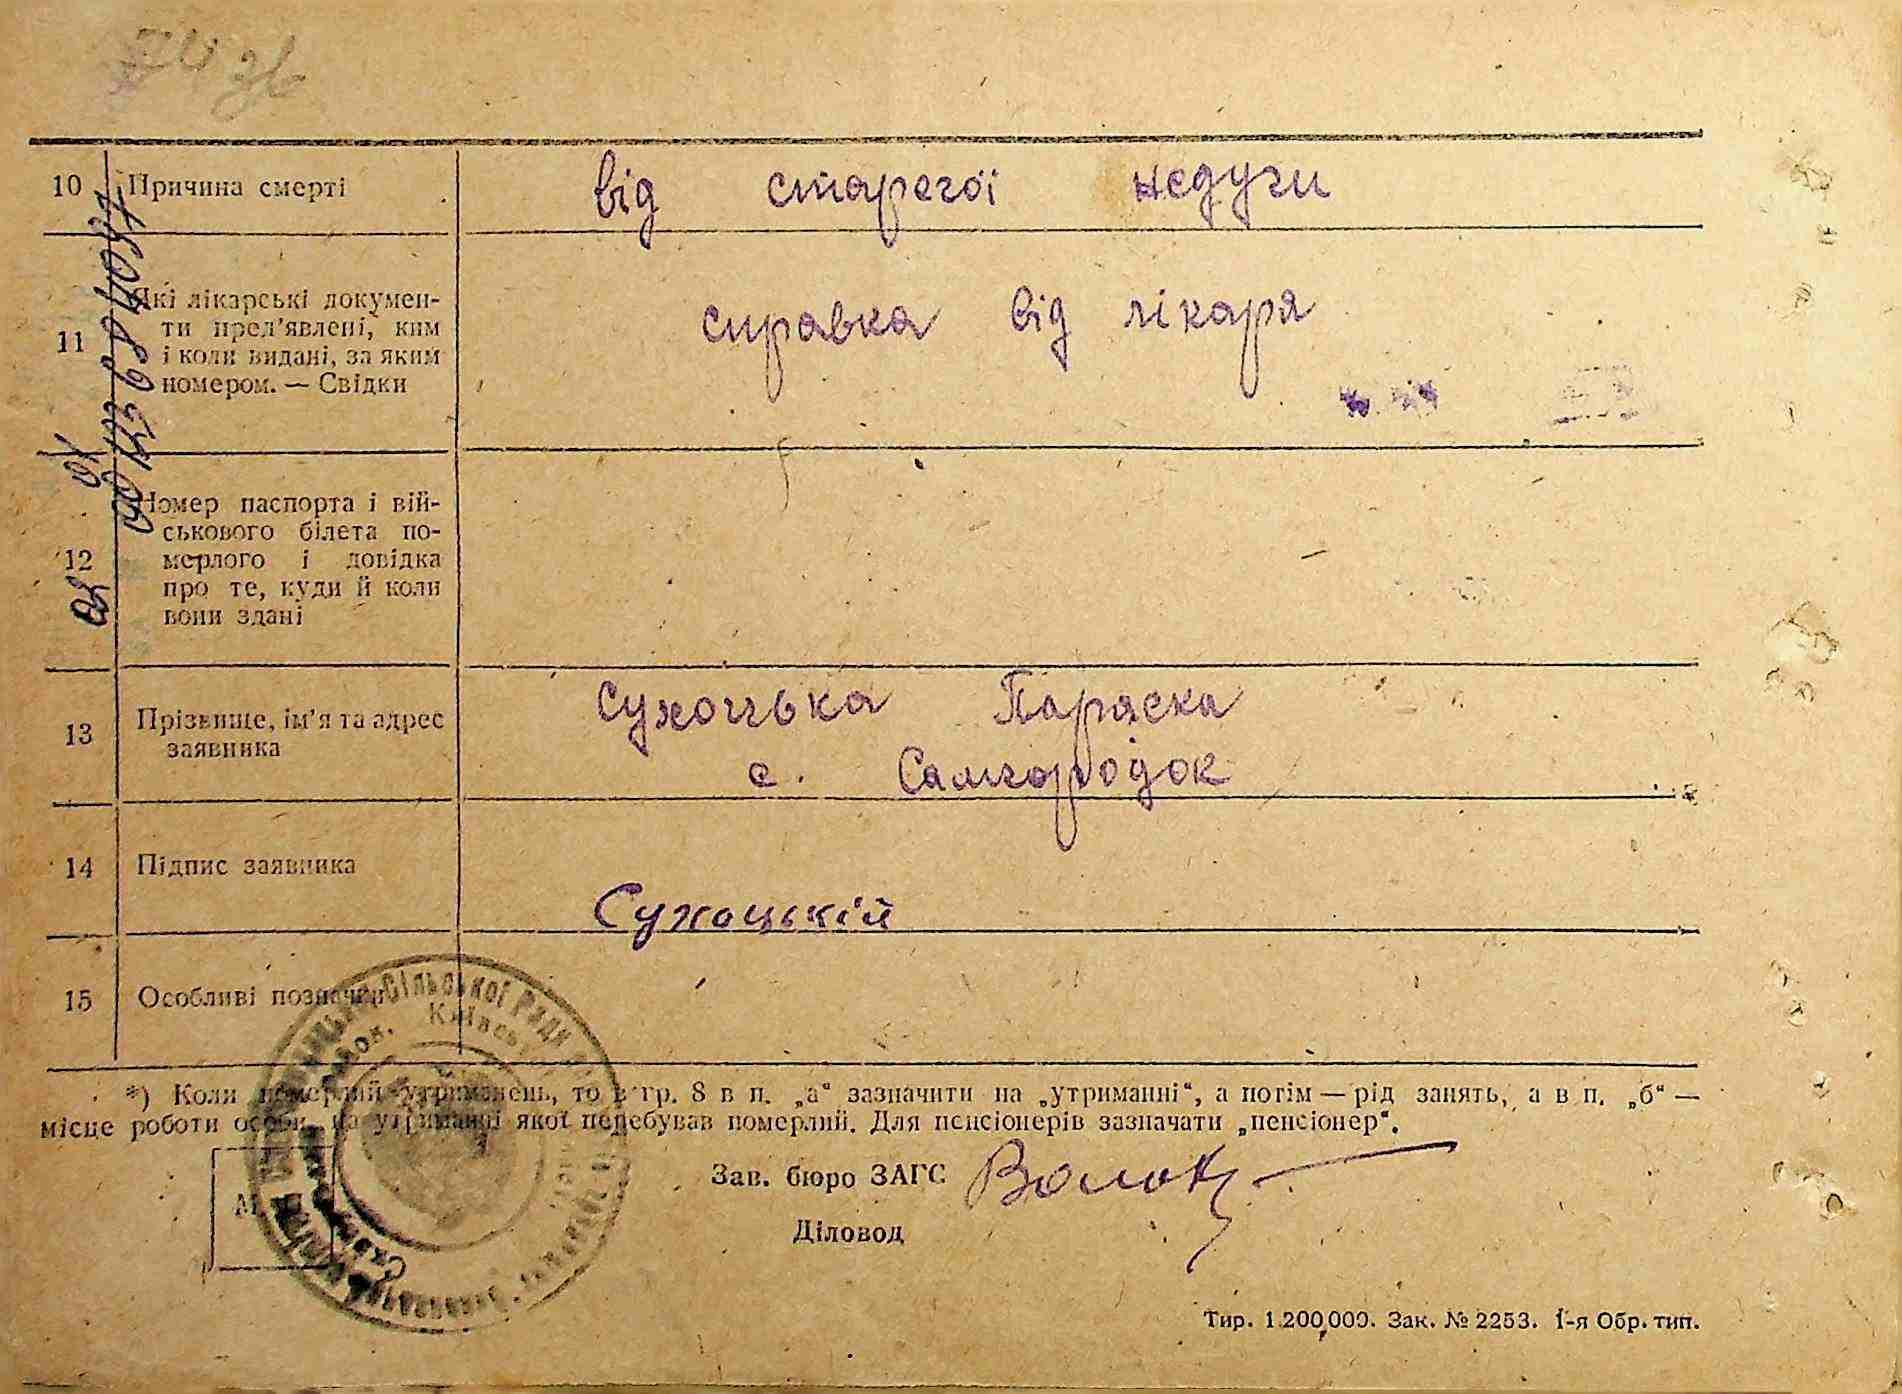 10 Причина смерті від старечої недуги
11 Які лікарські докумен-
ти пред'явлені, ким
і коли видані, за яким
номером. — Свідки
справка від лікаря
12 Номер паспорта і вій-
ськового білета по-
мерлого і довідка
про те, куди й коли
вони здані
13 Прізвище, ім'я та адрес
заявника
Сухоцька Параска
с. Самгородок
14 Підпис заявника
Сухоцькій
15 Особливі позначки
Сільської Ради
район. Київськ
*) Коли померлий утриманець, то в гр. 8 в п. „а“ зазначити на „утриманні“, а потім — рід занять, а в п. „б“ —
місце роботи особи, на утриманні якої перебував померлий. Для пенсіонерів зазначати „пенсіонер“.
М.
Зав. бюро ЗАГС
Діловод
Тир. 1.200,000. Зак. № 2253. 1-я Обр. тип.